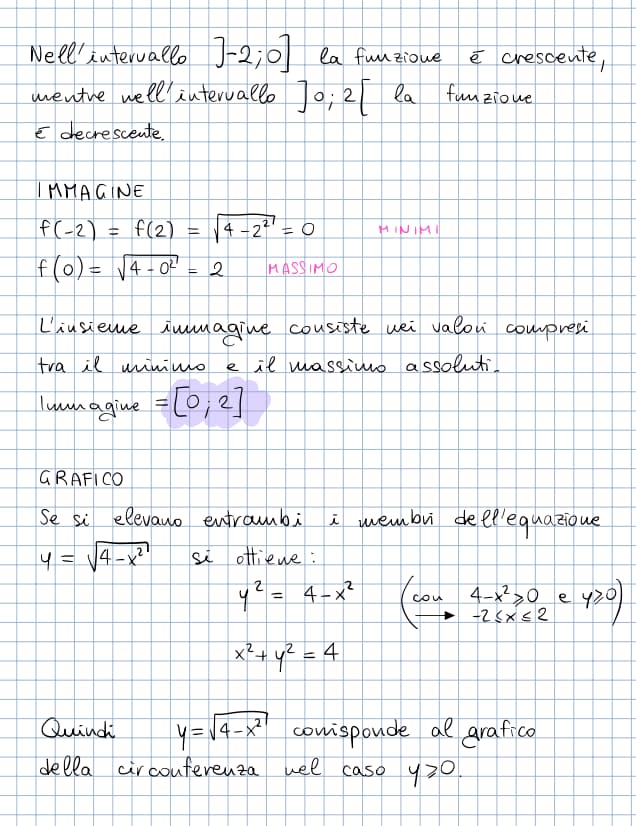 Nell'intervallo ]-2;0] la funzione è crescente,
mentre nell'intervallo ]0;2[ la funzione
è decrescente.
IMMAGINE
f(-2) = f(2) = √(4-2²) = 0 MINIMI
f(0) = √(4-0²) = 2 MASSIMO
L'insieme immagine consiste nei valori compresi
tra il minimo e il massimo assoluti.
Immagine = [0;2]
GRAFICO
Se si elevano entrambi i membri dell'equazione
y = √(4-x²) si ottiene:
y² = 4-x² (con 4-x²⩾0 e y⩾0)
→ -2⩽x⩽2
x²+y² = 4
Quindi y=√(4-x²) corrisponde al grafico
della circonferenza nel caso y⩾0.